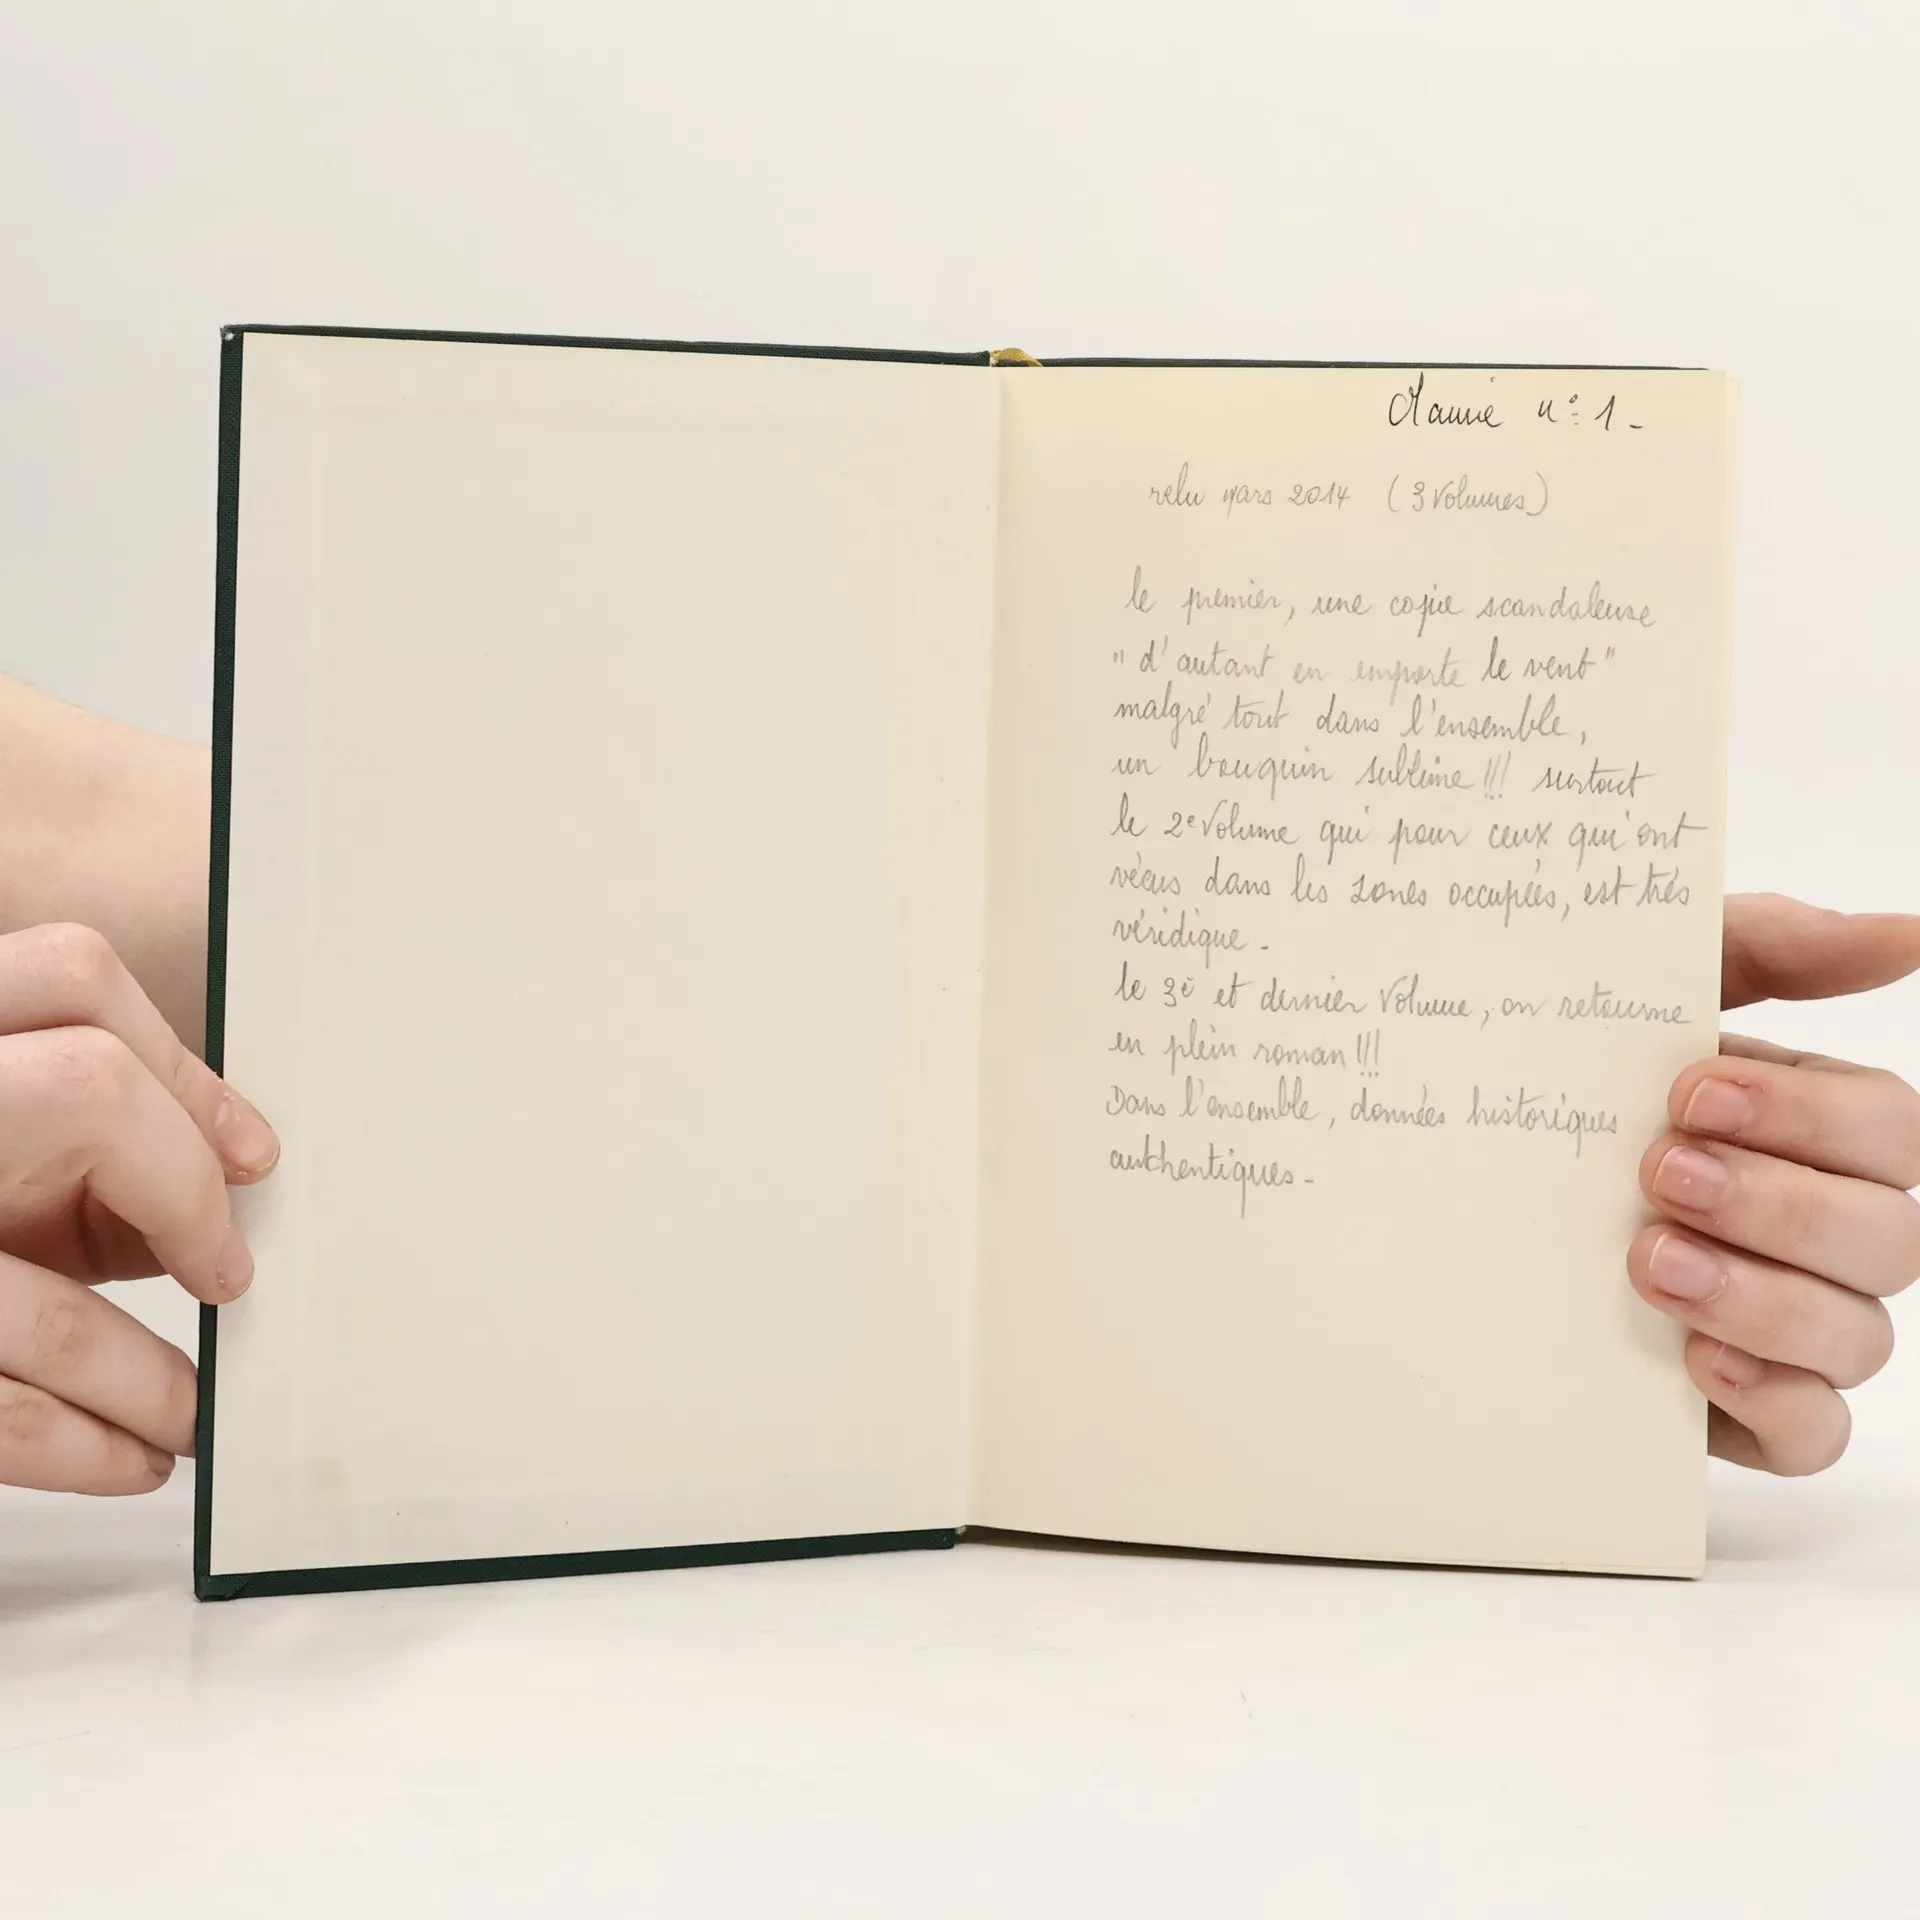 Mamie n° 1 -
relu mars 2014 (3 Volumes)
le premier, une copie scandaleuse
" d'autant en emporte le vent"
malgré tout dans l'ensemble,
un bouquin sublime !!! surtout
le 2e Volume qui pour ceux qui ont
vécus dans les zones occupées, est très
véridique -
le 3e et dernier Volume, on retourne
en plein roman !!!
Dans l'ensemble, données historiques
authentiques -